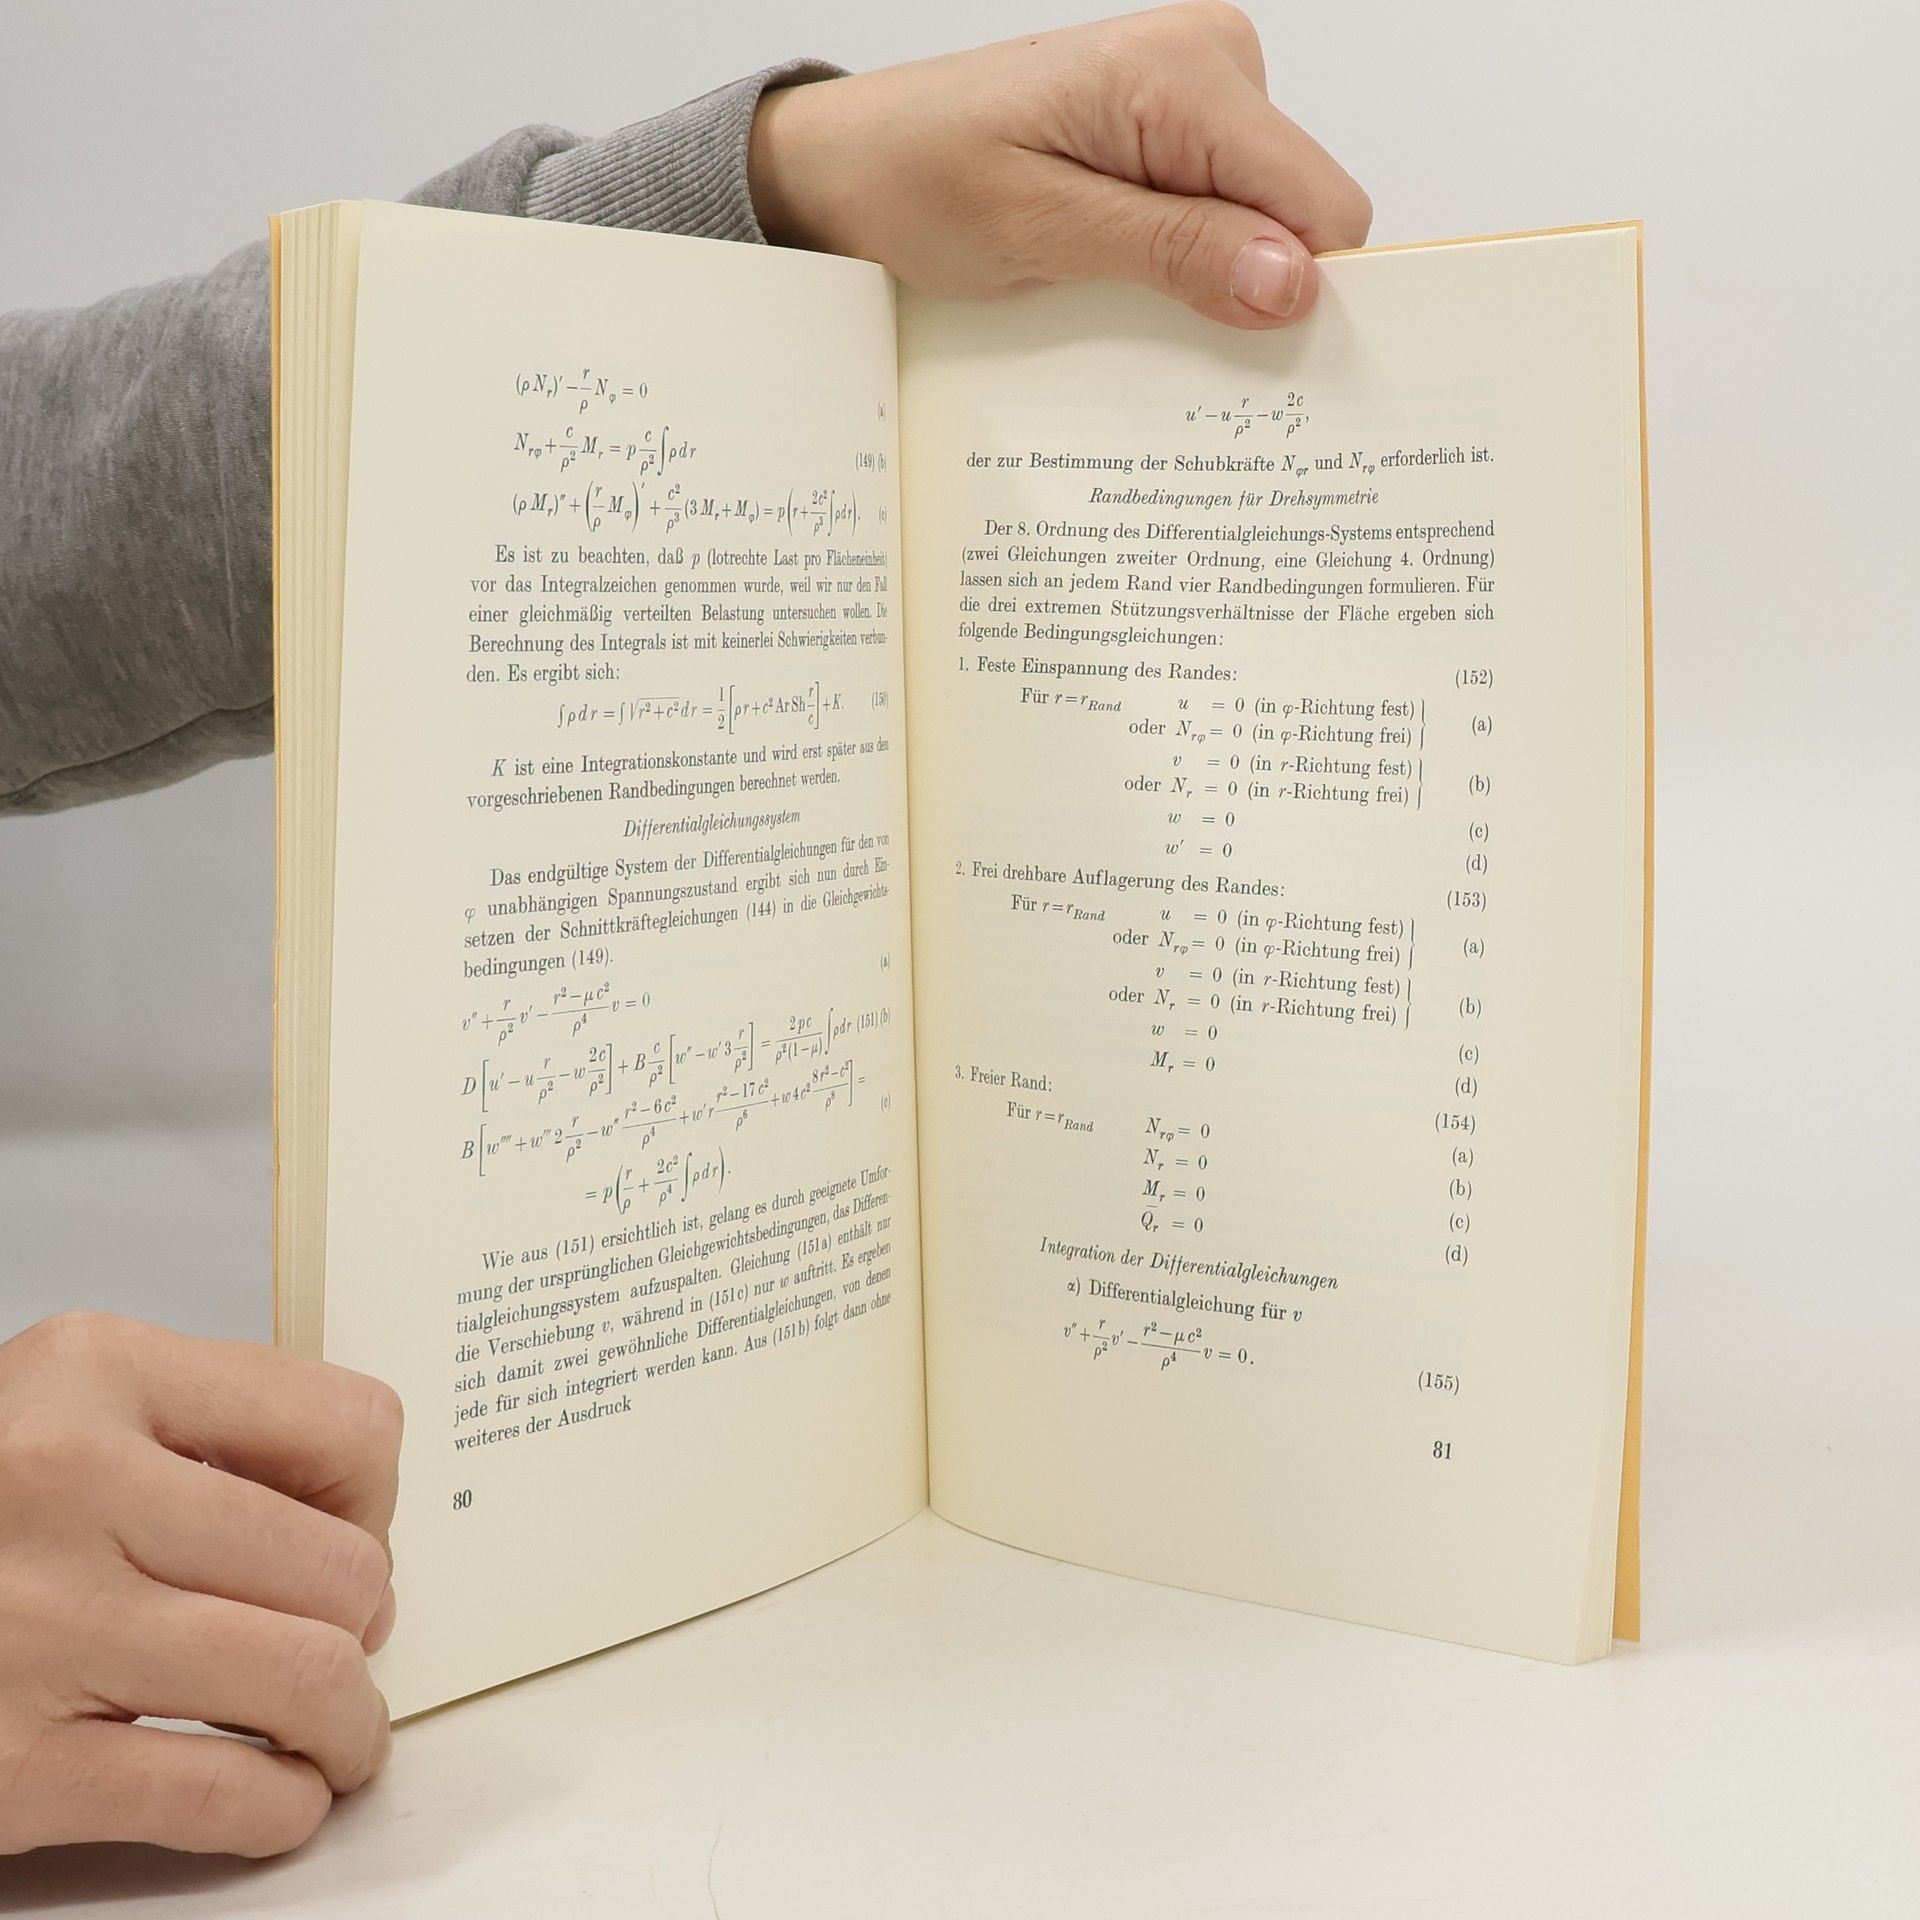 (ρ N_r)′ − r/ρ N_φ = 0 (a)
N_rφ + c/ρ² M_r = p c/ρ² ∫ρ dr (149) (b)
(ρ M_r)″ + (r/ρ M_φ)′ + c²/ρ³ (3 M_r + M_φ) = p(r + 2c²/ρ³ ∫ρdr). (c)
Es ist zu beachten, daß p (lotrechte Last pro Flächeneinheit)
vor das Integralzeichen genommen wurde, weil wir nur den Fall
einer gleichmäßig verteilten Belastung untersuchen wollen. Die
Berechnung des Integrals ist mit keinerlei Schwierigkeiten verbun-
den. Es ergibt sich:
∫ρ dr = ∫√(r² + c²) dr = 1/2 [ρ r + c² Ar Sh r/c] + K. (150)
K ist eine Integrationskonstante und wird erst später aus den
vorgeschriebenen Randbedingungen berechnet werden.
Differentialgleichungssystem
Das endgültige System der Differentialgleichungen für den von
φ unabhängigen Spannungszustand ergibt sich nun durch Ein-
setzen der Schnittkräftegleichungen (144) in die Gleichgewichts-
bedingungen (149).
v″ + r/ρ² v′ − (r² − μ c²)/ρ⁴ v = 0 (a)
D [u′ − u r/ρ² − w 2c/ρ²] + B c/ρ² [w″ − w′ 3 r/ρ²] = 2pc/(ρ²(1−μ)) ∫ρdr (151) (b)
B [w⁗ + w‴ 2 r/ρ² − w″ (r² − 6c²)/ρ⁴ + w′ r (r² − 17c²)/ρ⁶ + w 4c² (8r² − c²)/ρ⁸] = (c)
= p(r/ρ + 2c²/ρ⁴ ∫ρ dr).
Wie aus (151) ersichtlich ist, gelang es durch geeignete Umfor-
mung der ursprünglichen Gleichgewichtsbedingungen, das Differen-
tialgleichungssystem aufzuspalten. Gleichung (151a) enthält nur
die Verschiebung v, während in (151c) nur w auftritt. Es ergeben
sich damit zwei gewöhnliche Differentialgleichungen, von denen
jede für sich integriert werden kann. Aus (151b) folgt dann ohne
weiteres der Ausdruck
80
u′ − u r/ρ² − w 2c/ρ²,
der zur Bestimmung der Schubkräfte N_φr und N_rφ erforderlich ist.
Randbedingungen für Drehsymmetrie
Der 8. Ordnung des Differentialgleichungs-Systems entsprechend
(zwei Gleichungen zweiter Ordnung, eine Gleichung 4. Ordnung)
lassen sich an jedem Rand vier Randbedingungen formulieren. Für
die drei extremen Stützungsverhältnisse der Fläche ergeben sich
folgende Bedingungsgleichungen:
1. Feste Einspannung des Randes: (152)
Für r = r_Rand u = 0 (in φ-Richtung fest)
oder N_rφ = 0 (in φ-Richtung frei) } (a)
v = 0 (in r-Richtung fest)
oder N_r = 0 (in r-Richtung frei) } (b)
w = 0 (c)
w′ = 0 (d)
2. Frei drehbare Auflagerung des Randes: (153)
Für r = r_Rand u = 0 (in φ-Richtung fest)
oder N_rφ = 0 (in φ-Richtung frei) } (a)
v = 0 (in r-Richtung fest)
oder N_r = 0 (in r-Richtung frei) } (b)
w = 0 (c)
M_r = 0 (d)
3. Freier Rand: (154)
Für r = r_Rand N_rφ = 0 (a)
N_r = 0 (b)
M_r = 0 (c)
Q̄_r = 0 (d)
Integration der Differentialgleichungen
α) Differentialgleichung für v
v″ + r/ρ² v′ − (r² − μ c²)/ρ⁴ v = 0. (155)
81